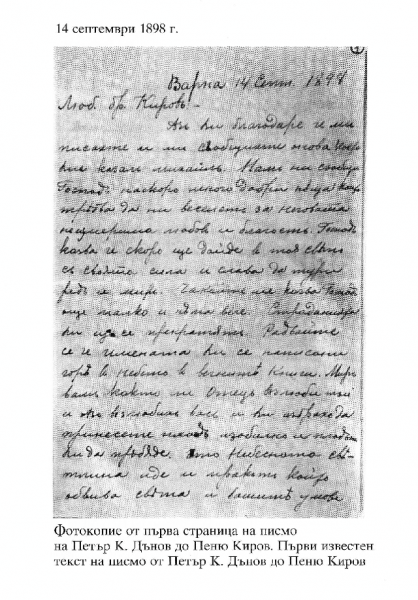 14 септември 1898 г.
Варна 14 Септ. 1898
Люб. бр. Кировъ. –
Аз ви благодаря че ми
писахте и ми съобщихте онова що
вие казал Михаилъ. Нам ни съобщи
Господъ наскоро много добри неща кои
трѣбва да ни веселят за неговата
неизмерима любов и благост. Господ
казва че скоро ще дойде в тоя свѣт
съ своята сила и слава да тури
редъ и миръ. Чакайте ме казва Господ
още малко и нѣма вече. Страданията
ви ще се прекратят. Радвайте
се че имената ви са написани
горѣ в небето в вечната Книга. Миръ
вам, както ме Отецъ възлюби тъй
и Аз възлюбих васъ и ви избрах да
принесете плодъ изобилно и плодът
ви да прѣбѫде. Ето небесната свѣ-
тлина иде и мракът който
обвива свѣта и вашите умове
Фотокопие от първа страница на писмо
на Петър К. Дънов до Пеню Киров. Първи известен
текст на писмо от Петър К. Дънов до Пеню Киров